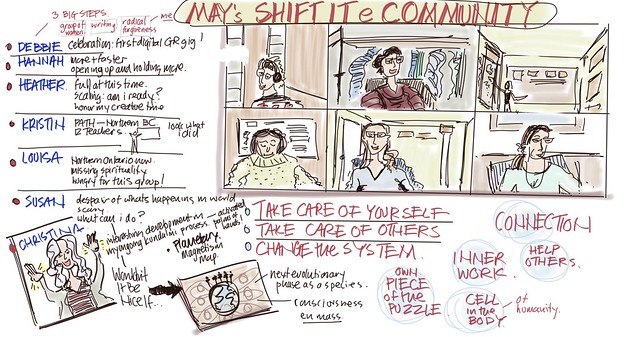 MAY's SHIFT IT e COMMUNITY
3 BIG STEPS
group of women
writing
radical forgiveness
me
DEBBIE
celebration: first digital GR gig!
HANNAH
more + faster
opening up and holding more.
HEATHER
Full at this time.
scaling: am i ready?
honor my creative time
KRISTIN
PATH - Northern BC
12 Teachers.
look what
i did
LOUISA
Northern Ontario now.
missing spirituality
hungry for this group!
SUSAN
despair of whats happening in world
scary
what can i do?
CHRISTINA
interesting development in
my ongoing kundalini process
activated
palms of
hands
Planetary
magnetism
map.
Wouldn't
it be
nice if...
next evolutionary
phase as a species.
consciousness
en mass.
TAKE CARE OF YOURSELF
TAKE CARE OF OTHERS
CHANGE THE SYSTEM.
CONNECTION
INNER
WORK.
HELP
OTHERS.
OWN
PIECE
of the
PUZZLE
CELL
in the
BODY
of
humanity.